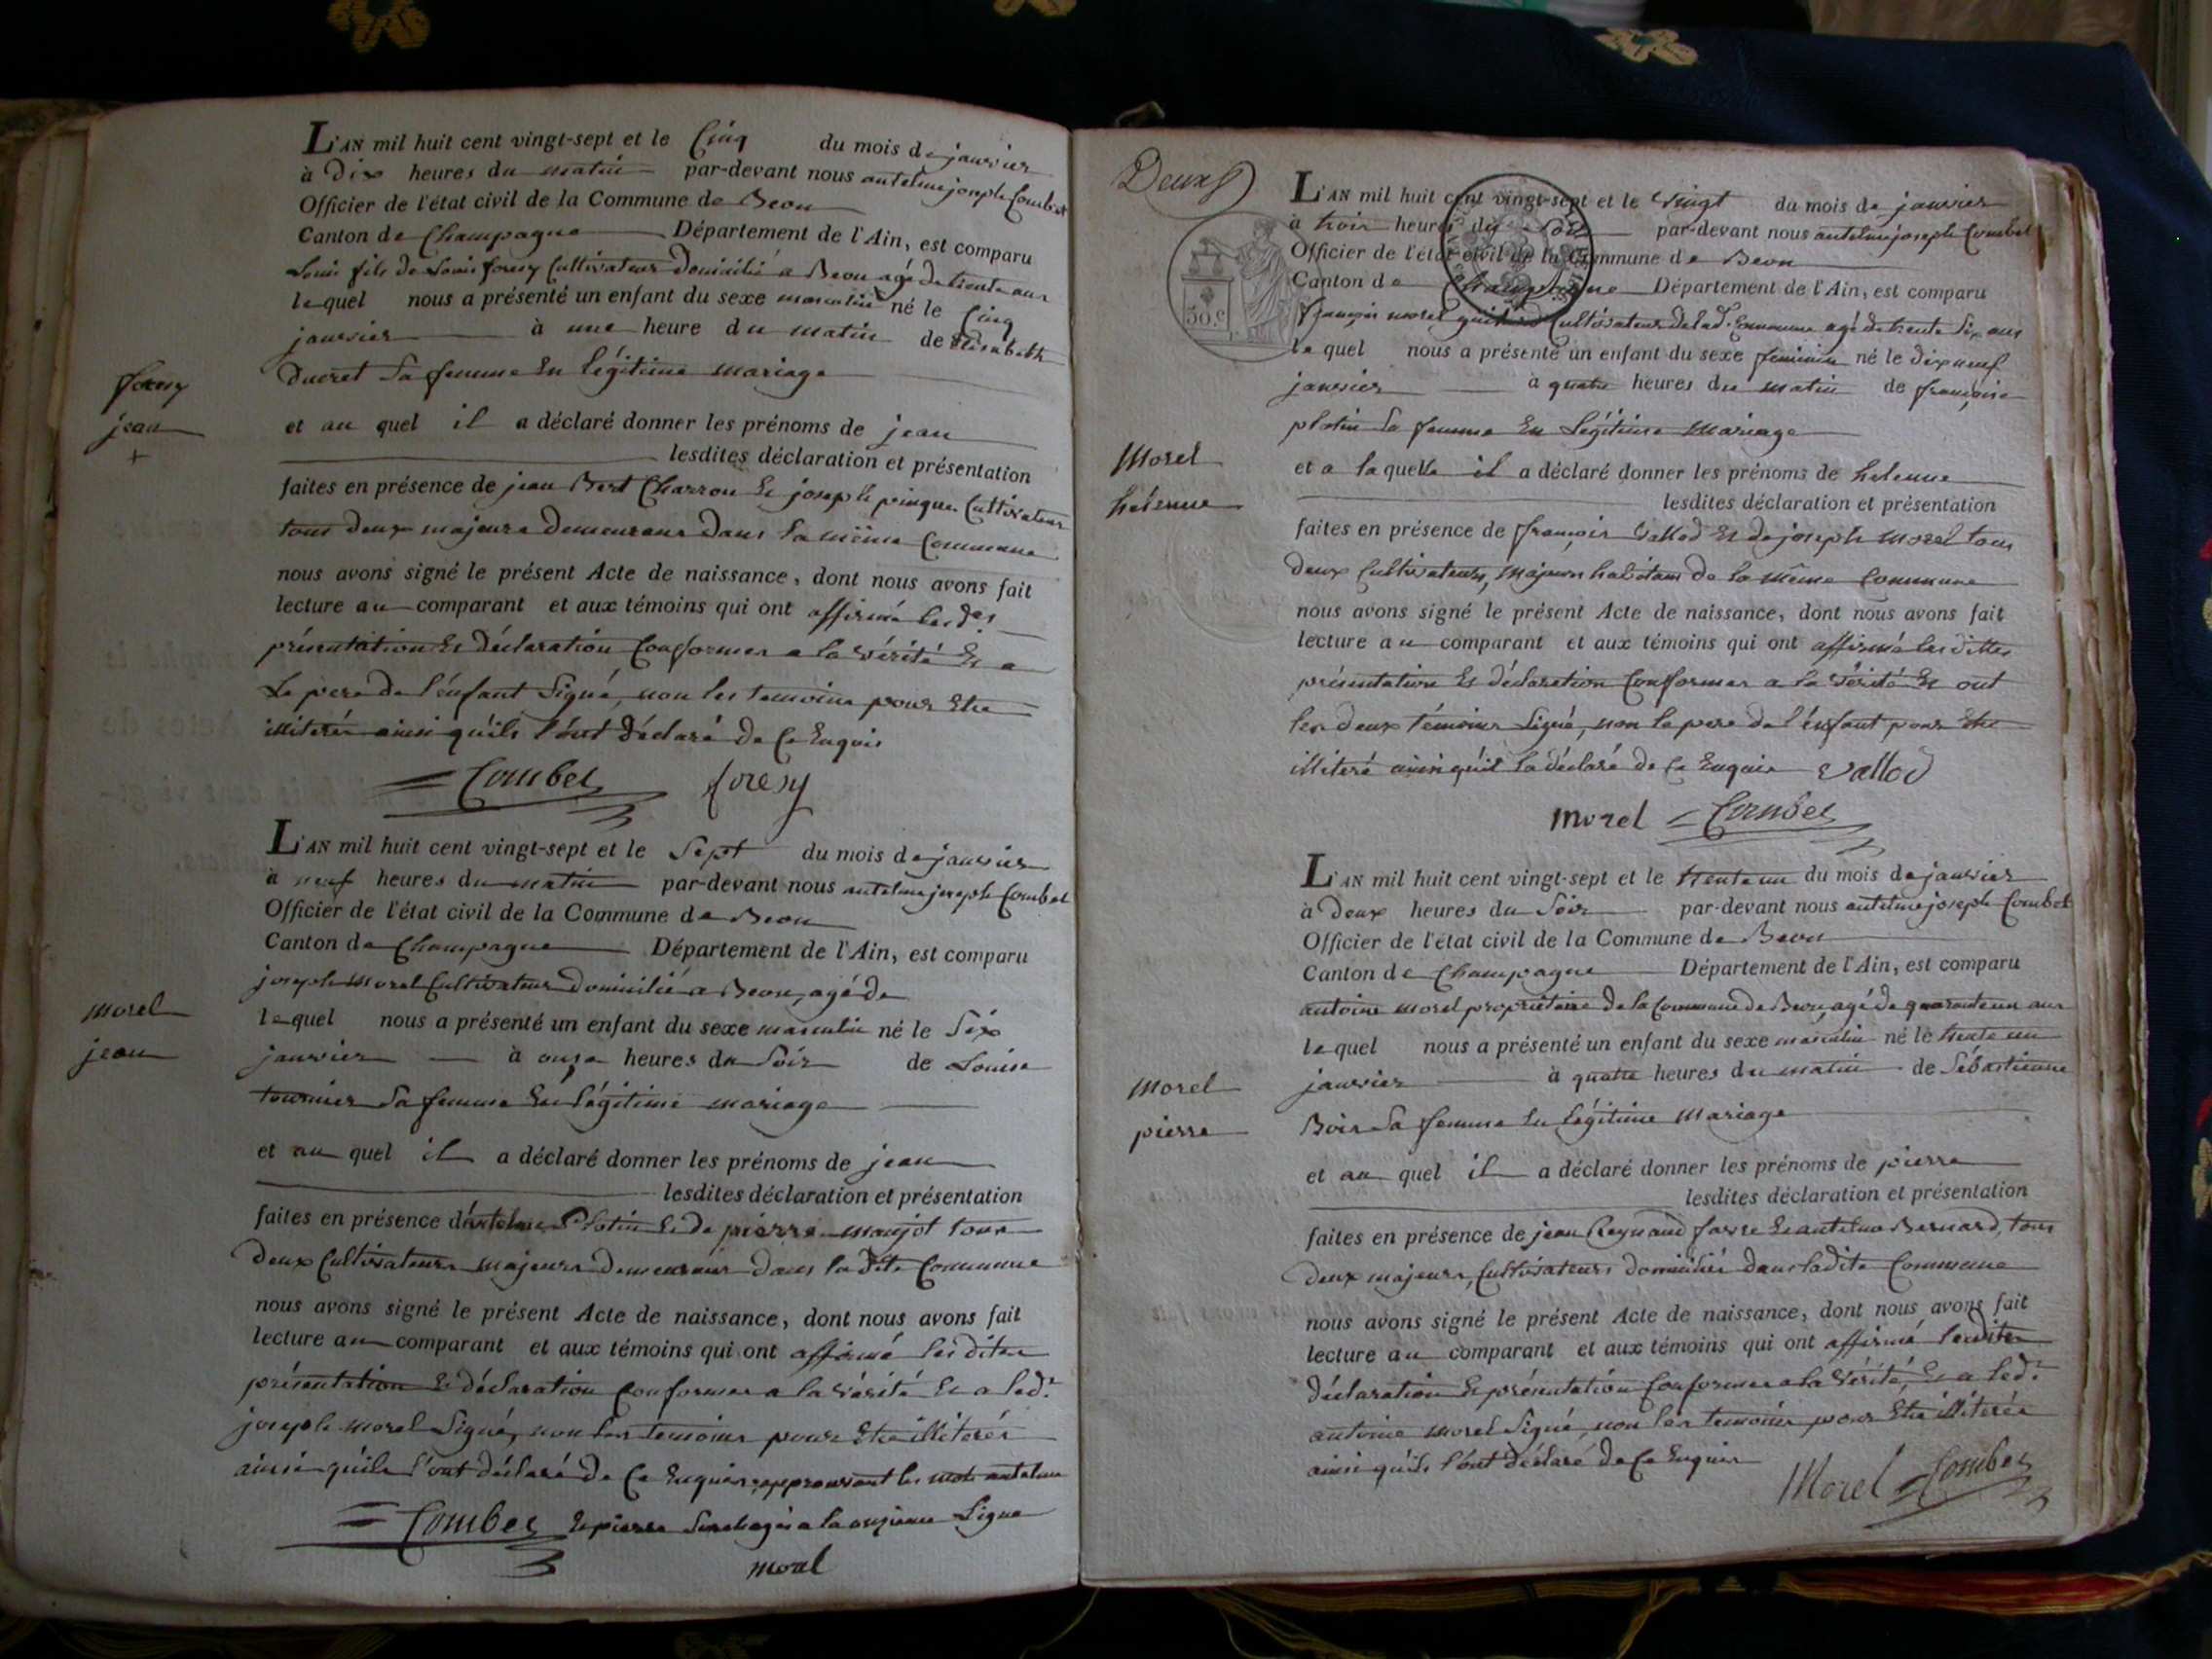 L'AN mil huit cent vingt-sept et le Cinq du mois de janvier
à Dix heures du matin par-devant nous antelme joseph Combet
Officier de l'état civil de la Commune de Beon
Canton de Champagne Département de l'Ain, est comparu
Louis fils de Louis forey Cultivateur domicilié a Beon agé de trente ans
lequel nous a présenté un enfant du sexe masculin né le Cinq
janvier à une heure du matin de Elisabeth
Ducret Sa femme En légitime mariage
forey
jean
+
et au quel il a déclaré donner les prénoms de jean
lesdites déclaration et présentation
faites en présence de jean Bert Charron Et joseph Cultivateur
tous deux majeurs Demeurans Dans la même Commune
nous avons signé le présent Acte de naissance, dont nous avons fait
lecture au comparant et aux témoins qui ont affirmé les des
présentation Et déclaration Conformes a la vérité Et a
Le pere de l'énfant Signé, non les temoins pour Etre
illiterés ainsi qu'ils l'ont Déclaré de Ce Enquis
Combet forey
L'AN mil huit cent vingt-sept et le Sept du mois de janvier
à neuf heures du matin par-devant nous antelme joseph Combet
Officier de l'état civil de la Commune de Beon
Canton de Champagne Département de l'Ain, est comparu
joseph Morel Cultivateur domicilié a Beon, agé de
lequel nous a présenté un enfant du sexe masculin né le Six
janvier à onze heures du Soir de Louise
tournier Sa femme En légitime mariage
morel
jean
et au quel il a déclaré donner les prénoms de jean
lesdites déclaration et présentation
faites en présence d'antelme Platin Et de pierre manjot tous
deux Cultivateurs majeurs Demeurans dans la dite Commune
nous avons signé le présent Acte de naissance, dont nous avons fait
lecture au comparant et aux témoins qui ont affirmé les dites
présentation Et déclaration Conformes a la vérité Et a led.t
joseph morel Signé, non les temoins pour Etre illiterés
ainsi qu'ils l'ont déclaré de Ce Enquis approuvant les mots antelme
Combet Et pierre Surchargés a la onzieme Ligne
morel
Deux
30.c
L'AN mil huit cent vingt-sept et le Vingt du mois de janvier
à trois heures du Soir par-devant nous antelme joseph Combet
Officier de l'état civil de la Commune de Beon
Canton de Champagne Département de l'Ain, est comparu
françois morel Cultivateur de lad. Commune agé de trente Six ans
le quel nous a présenté un enfant du sexe feminin né le dixneuf
janvier à quatre heures du matin de françoise
platin Sa femme En Légitime Mariage
Morel
helenne
et a laquelle il a déclaré donner les prénoms de helenne
lesdites déclaration et présentation
faites en présence de françois Vallod Et de joseph Morel tous
deux Cultivateurs, Majeurs habitans de la même Commune
nous avons signé le présent Acte de naissance, dont nous avons fait
lecture au comparant et aux témoins qui ont affirmé les dittes
présentation Et déclaration Conformes a la vérité Et ont
les deux témoins Signé, non le pere de l'énfant pour Etre
illiteré ainsi qu'il la déclaré de Ce Enquis Vallod
Morel Combet
L'AN mil huit cent vingt-sept et le trente un du mois de janvier
à Deux heures du Soir par-devant nous antelme joseph Combet
Officier de l'état civil de la Commune de Beon
Canton de Champagne Département de l'Ain, est comparu
antoine morel propriétaire de la Commune de Beon, agé de quarante un ans
lequel nous a présenté un enfant du sexe masculin né le trente un
janvier à quatre heures du matin de Sébastienne
Bois Sa femme En Légitime Mariage
Morel
pierre
et au quel il a déclaré donner les prénoms de pierre
lesdites déclaration et présentation
faites en présence de jean Reynaud favre Et antelme Bernard, tous
deux majeurs, Cultivateurs domiciliés dans ladite Commune
nous avons signé le présent Acte de naissance, dont nous avons fait
lecture au comparant et aux témoins qui ont affirmé lesdites
Déclaration Et présentation Conformes a la Vérité, Et a led.t
antoine morel Signé, non les temoins pour Etre illiterés
ainsi qu'ils l'ont Déclaré de Ce Enquis
Morel Combet